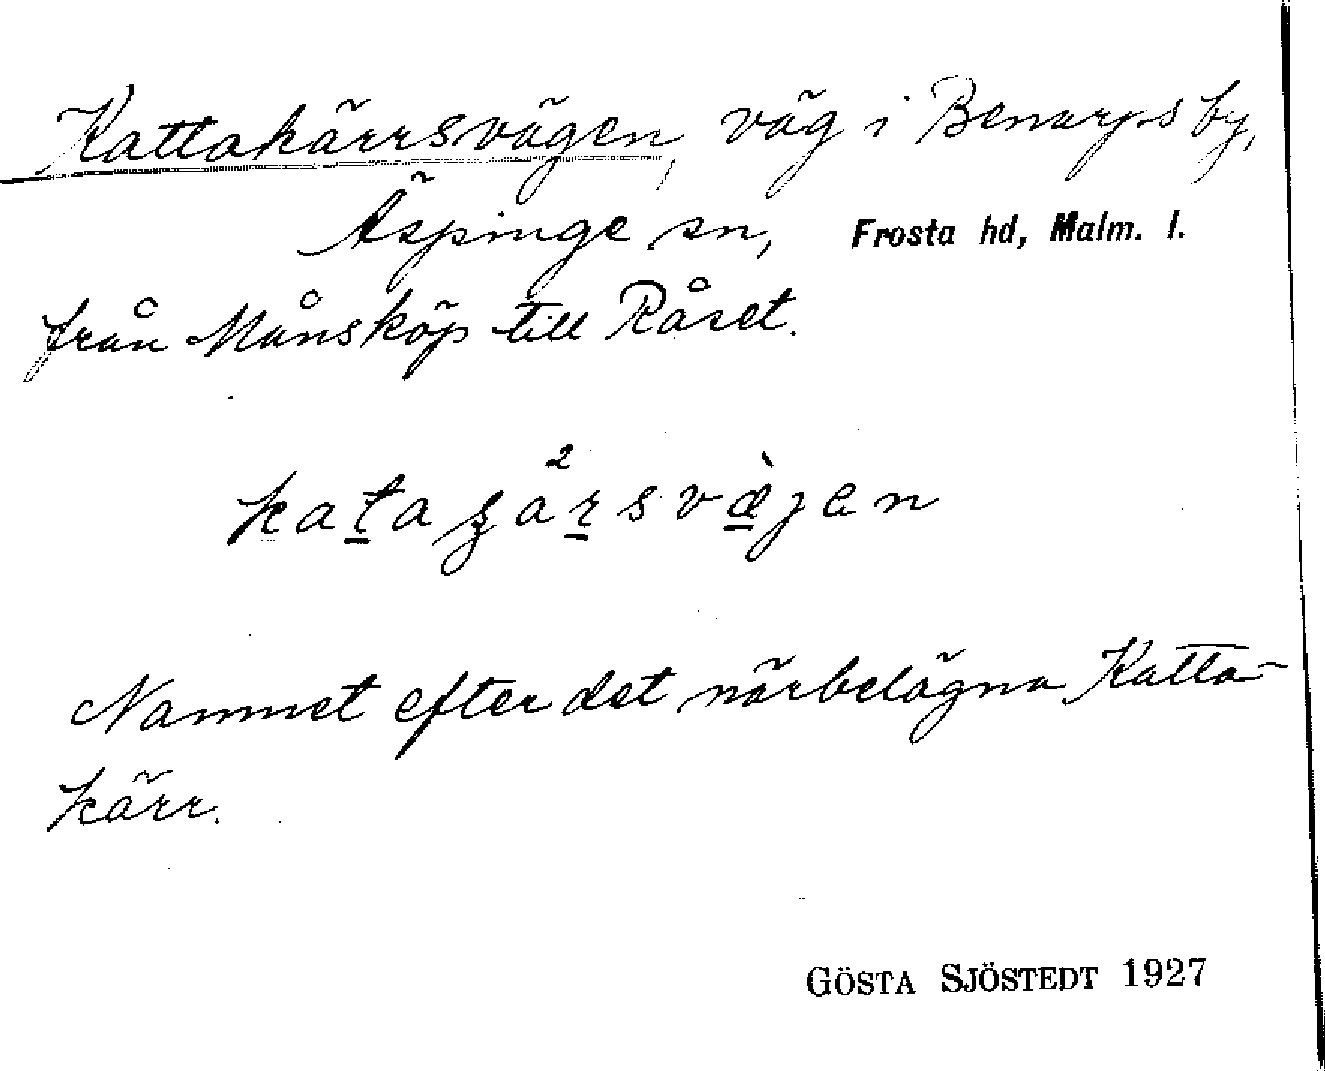 Kattakärrsvägen, väg i Benarps by,
Äspinge sn, Frosta hd, Malm. l.
från Månsköp till Råset.
Namnet efter det närbelägna Katta-
kärr.
GÖSTA SJÖSTEDT 1927